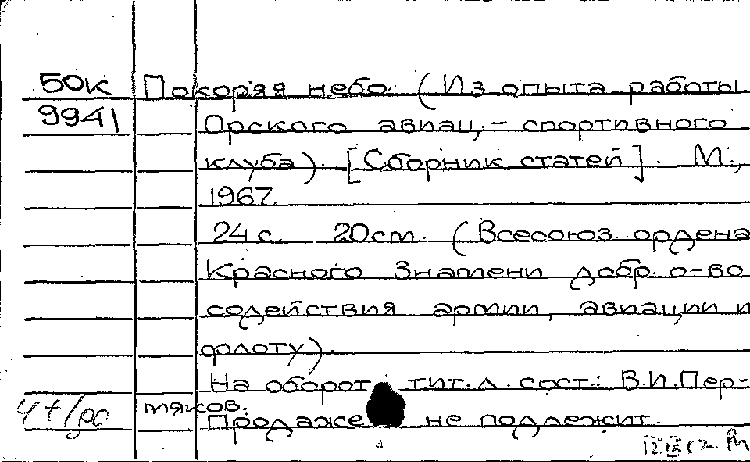 50К Покоряя небо. (Из опыта работы
9941 Орского авиац.-спортивного
клуба). [Сборник статей]. М.,
1967.
24с. 20см. (Всесоюз. ордена
Красного Знамени добр. о-во
содействия армии, авиации и
флоту).
На оборот. тит. л. сост.: В.И.Пер-
мяков.
Продаже не подлежит.